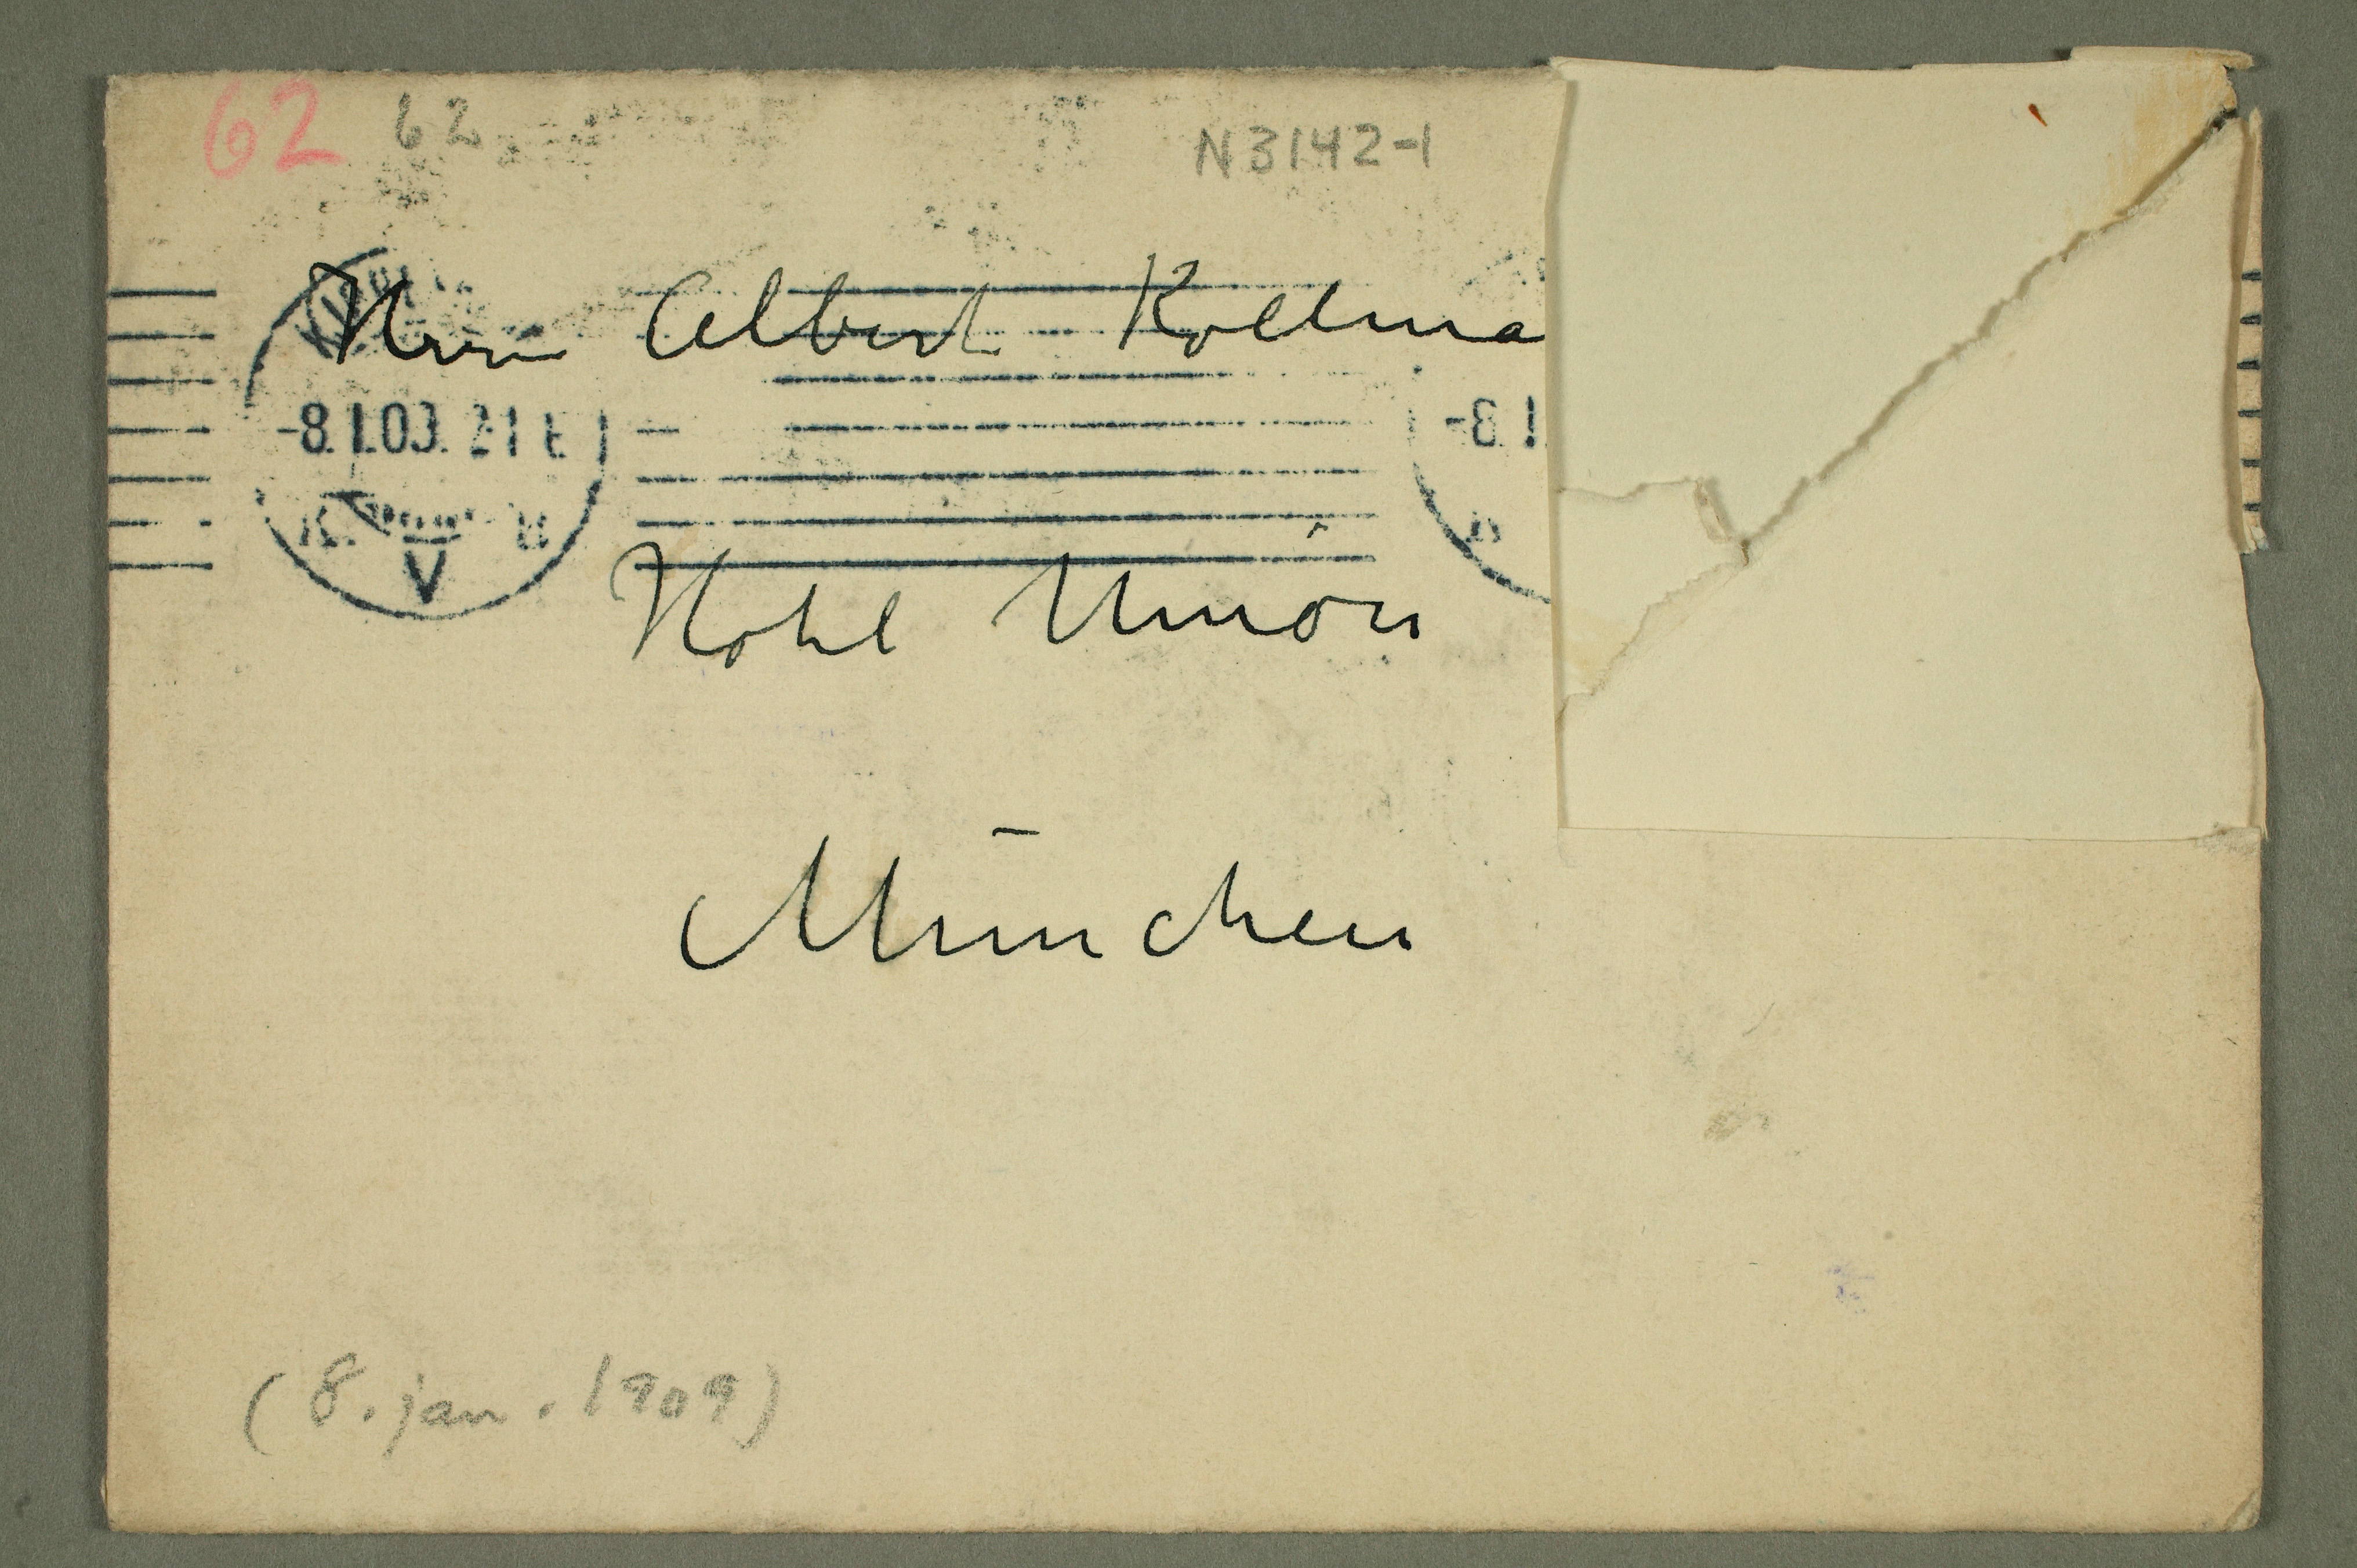 62 62 N3142-1
Herrn Albert Kollma
-8.1.09. 2-1
K. B
V
Hotel Union
München
(8. jan. 1909)